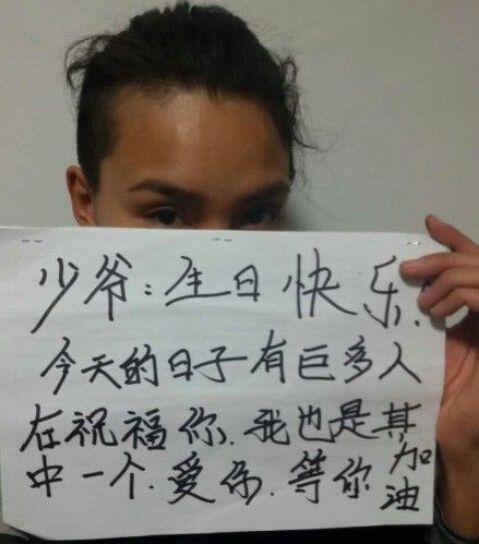 少爷:生日快乐.
今天的日子有巨多人
在祝福你.我也是其
中一个.爱你.等你加油